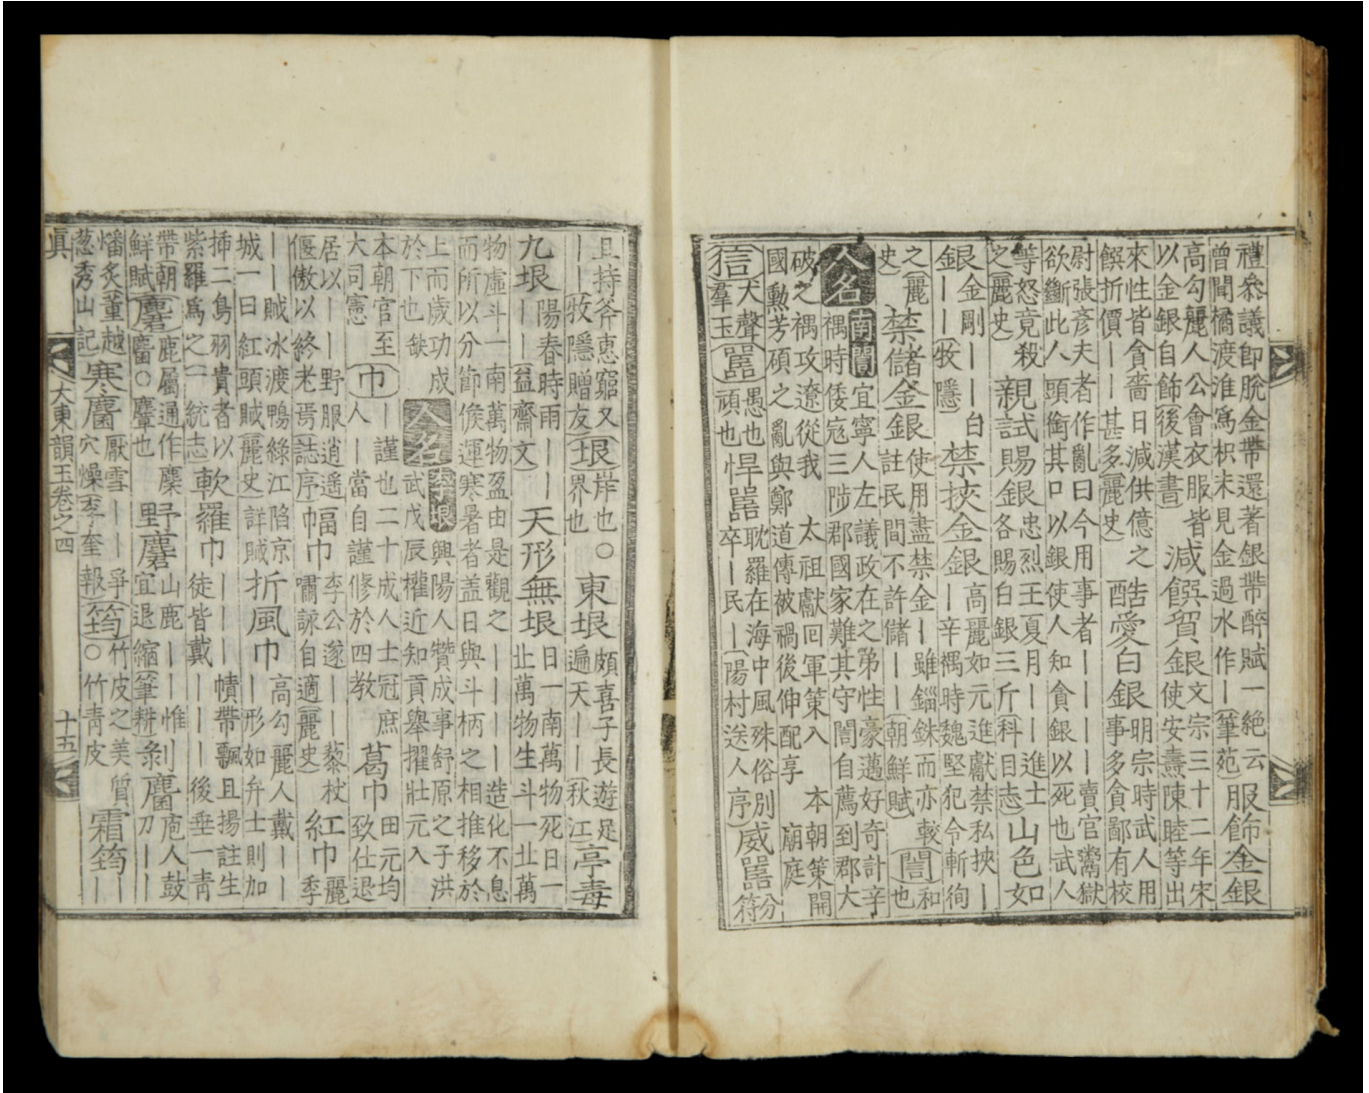 禮叅議卽脫金帶還著銀帶醉賦一絶云
曾聞橘渡淮爲枳未見金過水作丨(筆苑)
服飾金銀
高勾麗人公會衣服皆
以金銀自飾(後漢書)
減饌買銀
文宗三十二年宋
使安燾陳睦等出
來性皆貪嗇日減供億之
饌折價丨丨甚多(麗史)
酷愛白銀
明宗時武人用
事多貪鄙有校
尉張彥夫者作亂曰今用事者丨丨丨賣官鬻獄
欲斷此人頭銜其口以銀使人知貪銀以死也武人
等怒竟殺
之(麗史)
親試賜銀
忠烈王夏月丨丨進士
各賜白銀三斤(科目志)
山色如銀
金剛丨丨白
丨(牧隱)
禁挾金銀
高麗如元進獻禁私挾丨
丨辛禑時魏堅犯令斬徇
之(麗
史)
禁儲金銀
使用盡禁金丨雖錙銖而亦
註民間不許儲丨丨(朝鮮賦)
誾
和
也
人名
南誾
宜寧人左議政在之弟性豪邁好奇計辛
禑時倭寇三陟郡國家難其守誾自薦到郡大
破之禑攻遼從我 太祖獻回軍策入 本朝策開
國勳芳碩之亂與鄭道傳被禍後伸配享 廟庭
狺
犬聲
羣玉
嚚
愚也
頑也
悍嚚
耽羅在海中風殊俗別
卒丨民丨(陽村送人序)
威嚚
分
符
且持斧惠窮又
丨丨(牧隱贈友)
垠
岸也○
界也
東垠
頗喜子長遊足
遍天丨丨(秋江)
亭毒九垠
陽春時雨丨丨
丨丨(益齋文)
天形無垠
日一南萬物死日一
北萬物生斗一北萬
物虛斗一南萬物盈由是觀之丨丨丨丨造化不息
而所以分節候運寒暑者盖日與斗柄之相推移於
上而歲功成
於下也(缺
人名
李垠
興陽人贊成事舒原之子洪
武戊辰權近知貢擧擢壯元入
本朝官至
大司憲
巾
丨謹也二十成人士冠庶
人丨當自謹修於四教
葛巾
田元均
致仕退
居以丨丨野服逍遙
偃傲以終老焉(誌序)
幅巾
李公遂丨丨藜杖
嘯詠自適(麗史)
紅巾
麗
季
丨丨賊冰渡鴨綠江陷京
城一曰紅頭賊(麗史)詳賊
折風巾
高勾麗人戴丨丨
丨形如弁士則加
揷二鳥羽貴者以
紫羅爲之(一統志)
軟羅巾
丨丨丨幘帶飄且揚註生
徒皆戴丨丨丨後垂一靑
帶朝
鮮賦)
麏
鹿屬通作麇
麕○麞也
野麏
山鹿丨丨丨惟
宜退縮(筆耕)
剝麏
庖人鼓
刀丨丨
燔炙董越
葱秀山記
寒麏
厭雪丨丨爭
穴燥李奎報
筠
竹皮之美質
○竹靑皮
霜筠
丨
眞
大東韻玉卷之四
十五